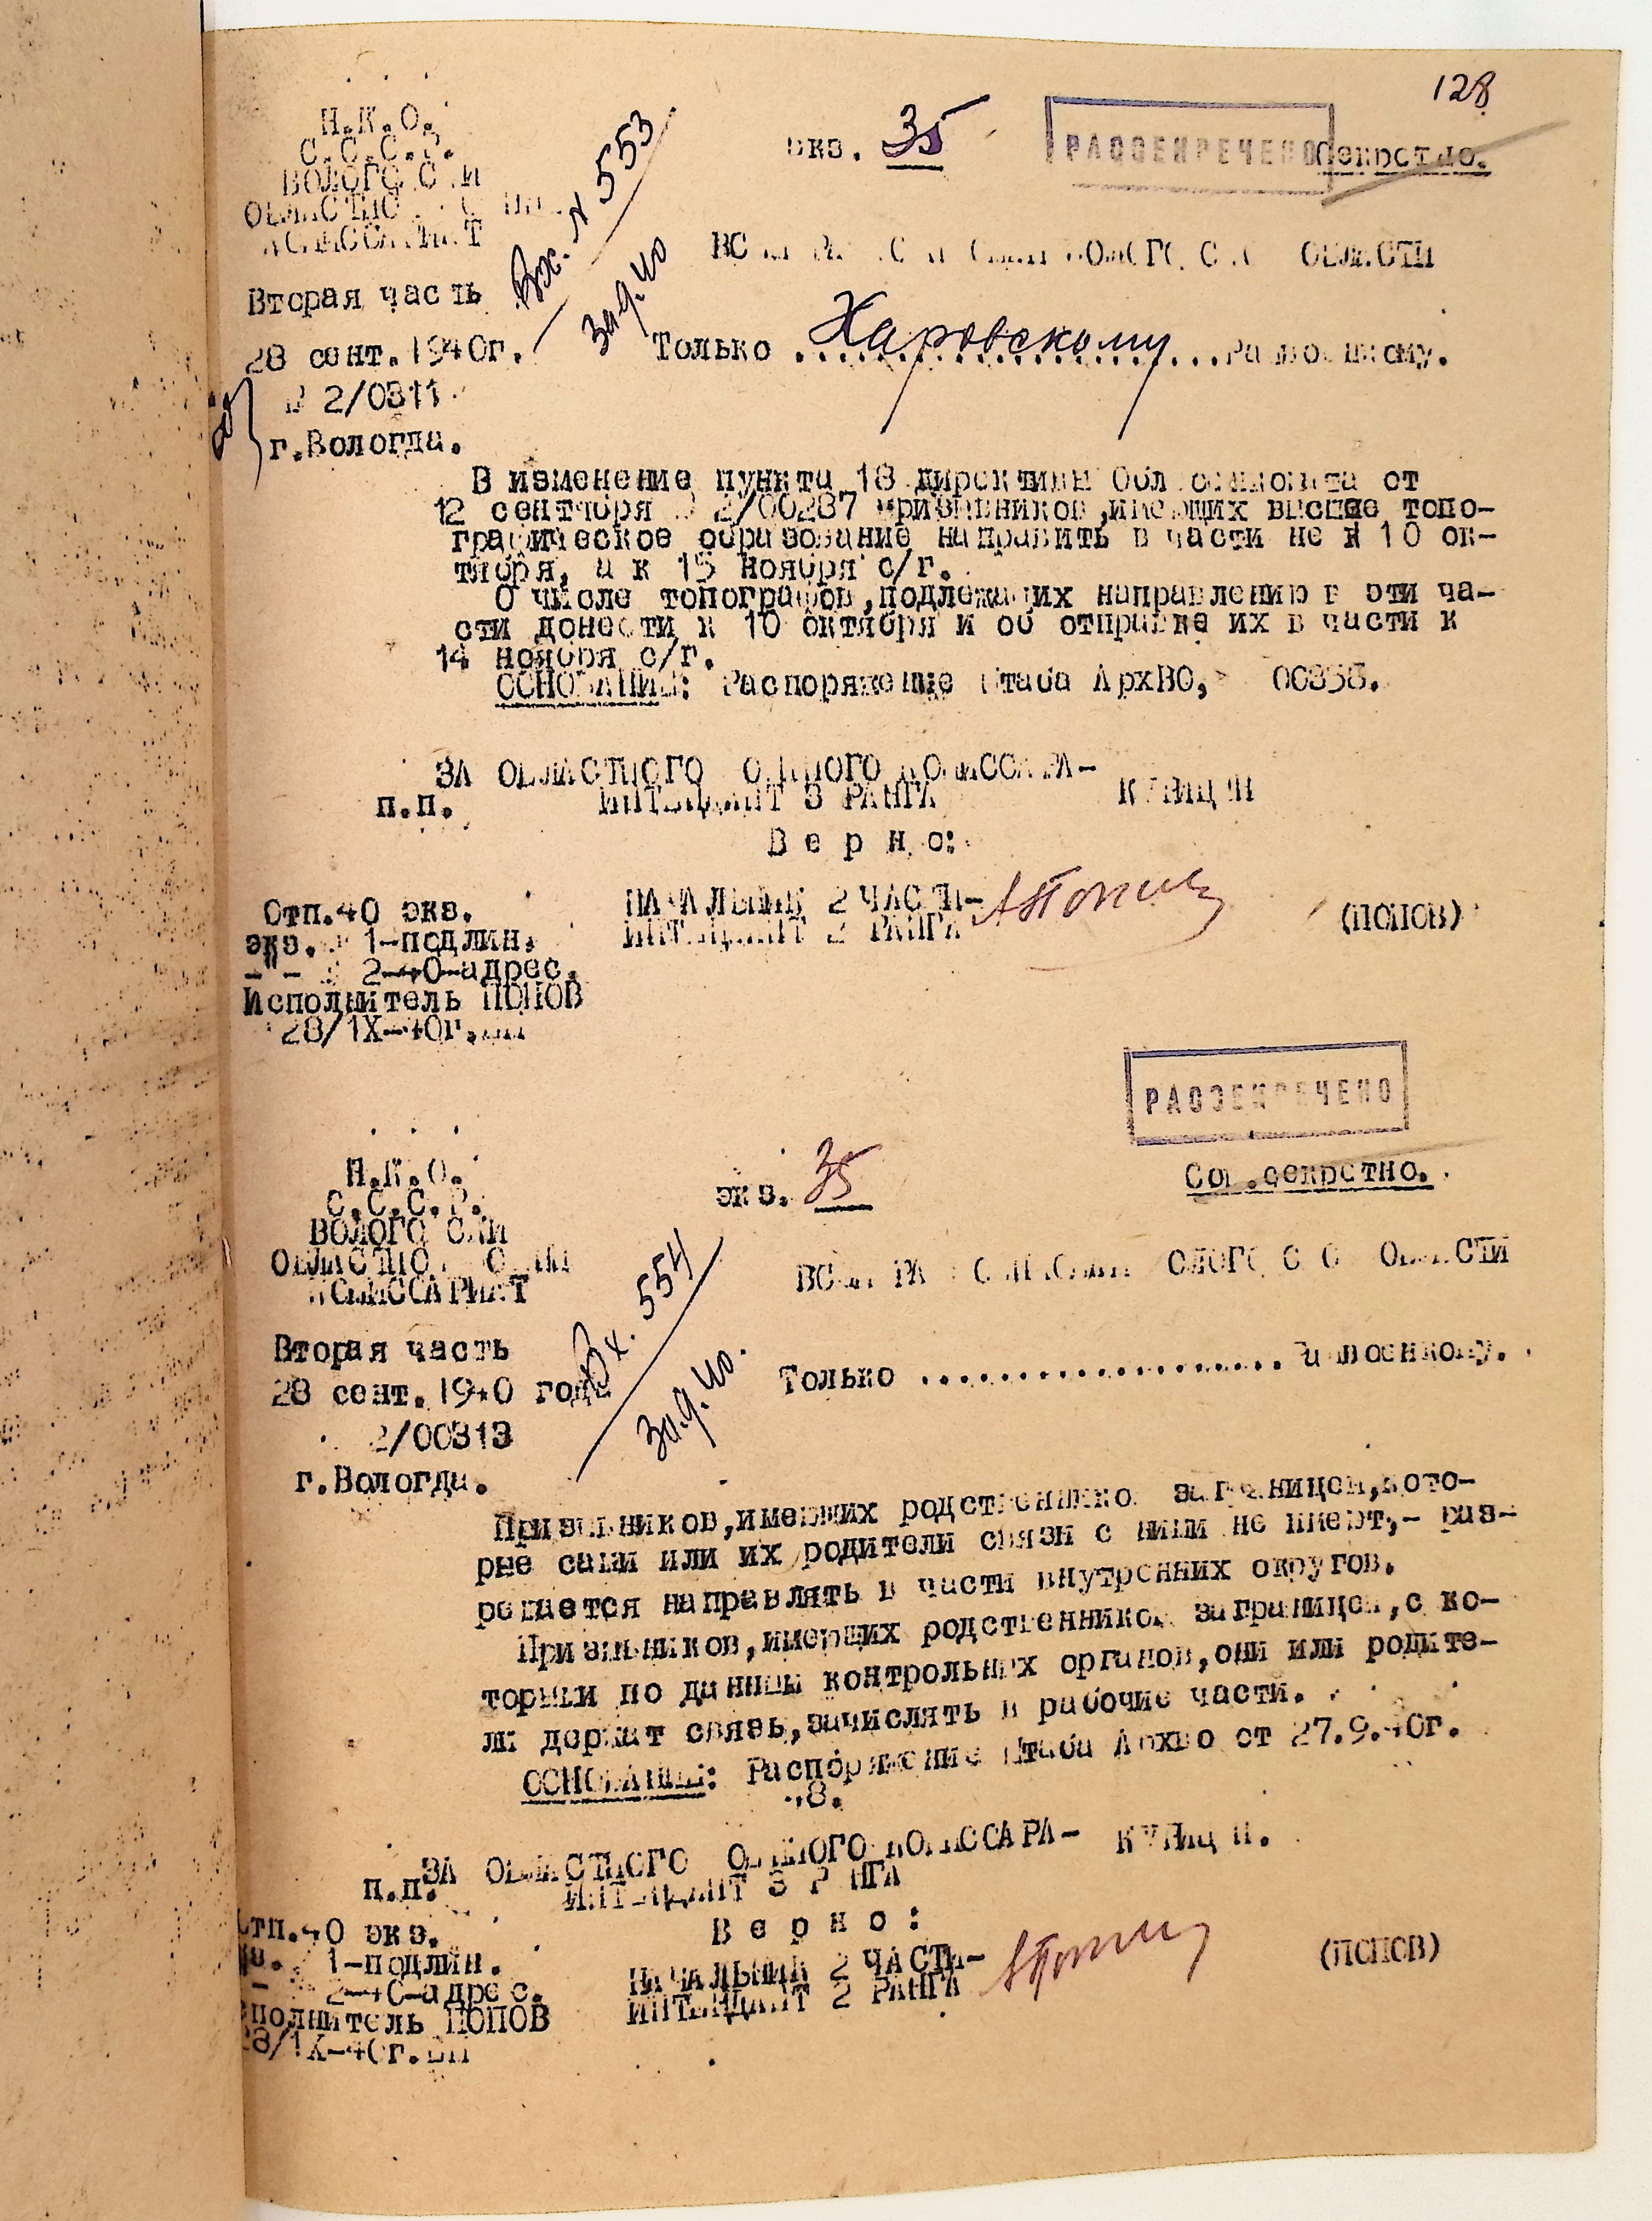 128
Н.К.О.
С.С.С.Р.
экз. 35
РАССЕКРЕЧЕНО
Секретно.
Вх. N 553
30.9.40
ОБЛАСТИ
Вторая часть
28 сент. 1940г.
Только Харовскому Райвоенкому.
2/0311
г.Вологда.
В изменение пункта 18 директивы Облвоенкомата от
12 сентября № 2/00287 призывников,имеющих высшее топо-
графическое образование направить в части не к 10 ок-
тября, а к 15 ноября с/г.
О числе топографов,подлежащих направлению в эти ча-
сти донести к 10 октября и об отправке их в части к
14 ноября с/г.
ОСНОВАНИЕ: Распоряжение Штаба АрхВО,
ЗА ОБЛАСТНОГО ВОЕННОГО КОМИССАРА-
п.п. ИНТЕНДАНТ 3 РАНГА КУНИЦИН
В е р н о:
НАЧАЛЬНИК 2 ЧАСТИ-
ИНТЕНДАНТ 2 РАНГА (ПОПОВ)
Отп.40 экз.
экз. № 1-подлин.
-"- № 2-40-адрес.
Исполнитель ПОПОВ
28/1Х-40г.
РАССЕКРЕЧЕНО
Н.К.О.
С.С.С.Р.
экз. 35
Сов.секретно.
ВОЛОГОДСКИЙ
КОМИССАРИАТ
Вх. 554
30.9.40.
ОБЛАСТИ
Вторая часть
28 сент. 1940 года
Только .................... Райвоенкому.
2/00313
г.Вологда.
Призывников,имеющих родственников заграницей,кото-
рые сами или их родители связи с ними не имеют,- раз-
решается направлять в части внутренних округов.
Призывников,имеющих родственников заграницей,с ко-
торыми по данным контрольных органов,они или родите-
ли держат связь,зачислять в рабочие части.
ОСНОВАНИЕ: Распоряжение Штаба Архво от 27.9.40г.
ЗА ОБЛАСТНОГО ВОЕННОГО КОМИССАРА- КУНИЦИН.
п.п. ИНТЕНДАНТ 3 РАНГА
В е р н о :
НАЧАЛЬНИК 2 ЧАСТИ-
ИНТЕНДАНТ 2 РАНГА (ПОПОВ)
отп.40 экз.
1-подлин.
2-40-адрес.
полнитель ПОПОВ
28/1Х-40г.ВП